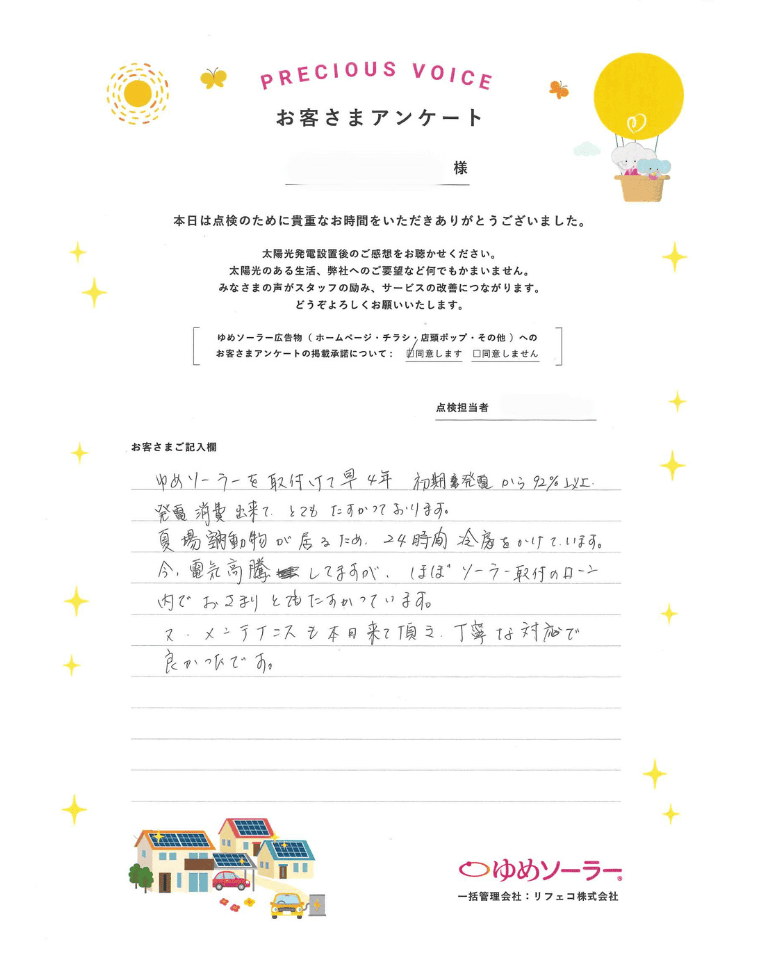 PRECIOUS VOICE
お客さまアンケート
様
本日は点検のために貴重なお時間をいただきありがとうございました。
太陽光発電設置後のご感想をお聴かせください。
太陽光のある生活、弊社へのご要望など何でもかまいません。
みなさまの声がスタッフの励み、サービスの改善につながります。
どうぞよろしくお願いいたします。
ゆめソーラー広告物（ ホームページ・チラシ・店頭ポップ・その他 ）への
お客さまアンケートの掲載承諾について： ☑同意します □同意しません
点検担当者
お客さまご記入欄
ゆめソーラーを取付けて早4年 初期発電から92%以上.
発電消費出来て、とてもたすかっております。
夏場動物が居るため、24時間冷房をかけています。
今、電気高騰してますが、ほぼソーラー取付のローン
内でおさまりとてもたすかっています。
又、メンテナンスも本日来て頂き、丁寧な対応で
良かったです。
ゆめソーラー®
一括管理会社：リフェコ株式会社